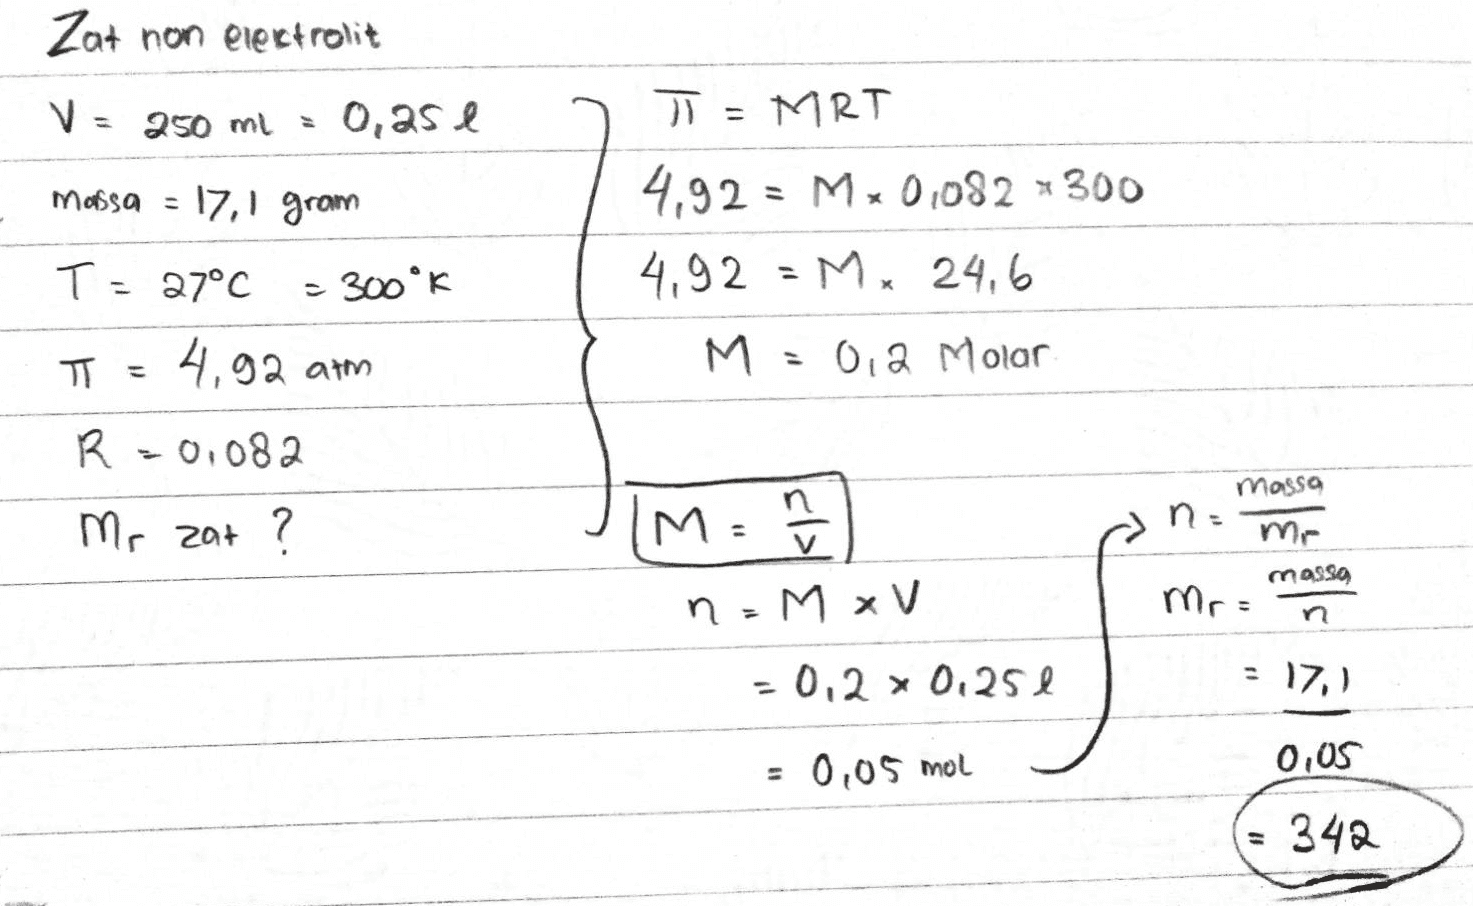 Zat non elektrolit
V = 250 ml = 0,25 l
massa = 17,1 gram
T = 27°C = 300°K
π = 4,92 atm
R = 0,082
Mr zat ?
π = MRT
4,92 = M x 0,082 x 300
4,92 = M x 24,6
M = 0,2 Molar
M = n/v
n = M x V
= 0,2 x 0,25 l
= 0,05 mol
n = massa/mr
mr = massa/n
= 17,1
0,05
= 342